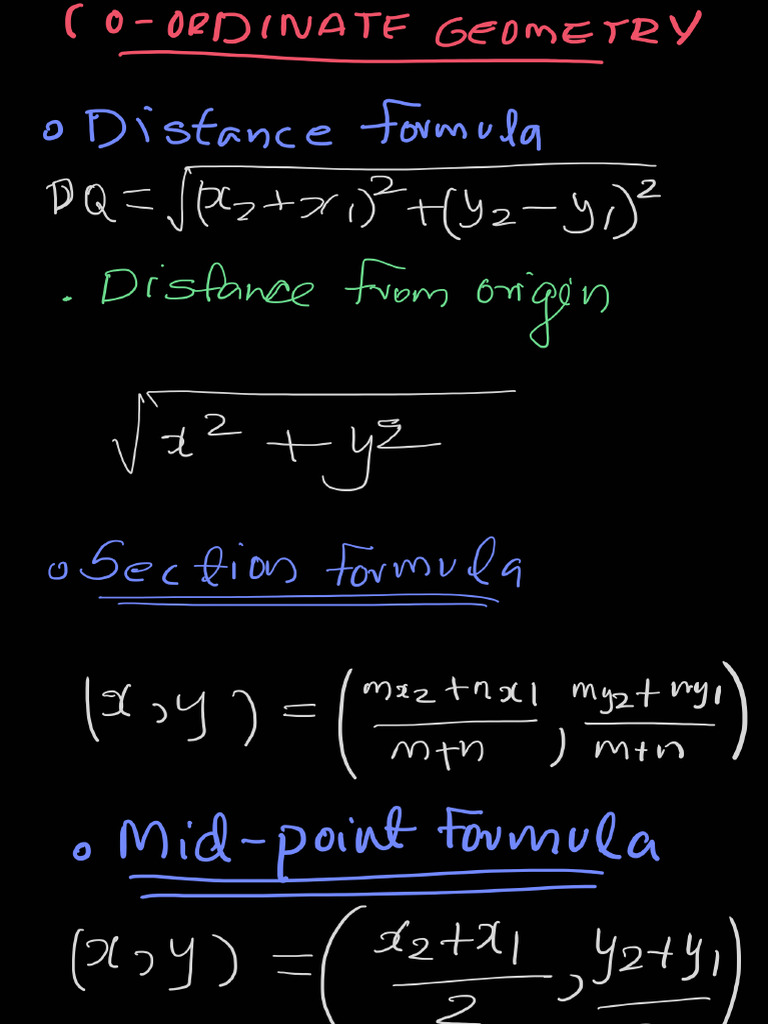 CO-ORDINATE GEOMETRY
Distance formula
PQ = √(x₂+x₁)² + (y₂-y₁)²
. Distance from origin
√x² + y²
Section formula
(x, y) = (mx₂+nx₁/m+n, my₂+ny₁/m+n)
Mid-point formula
(x, y) = (x₂+x₁/2, y₂+y₁